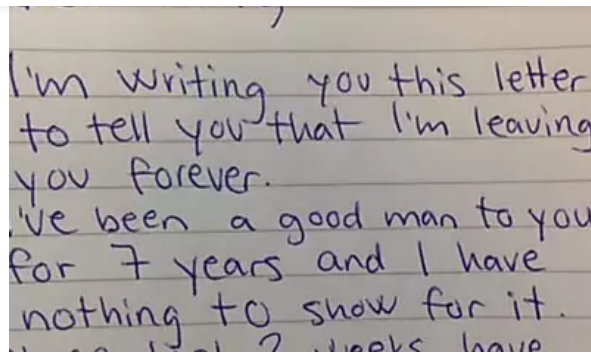 I'm writing you this letter
to tell you that I'm leaving
you forever.
I've been a good man to you
for 7 years and I have
nothing to show for it.
2 weeks have